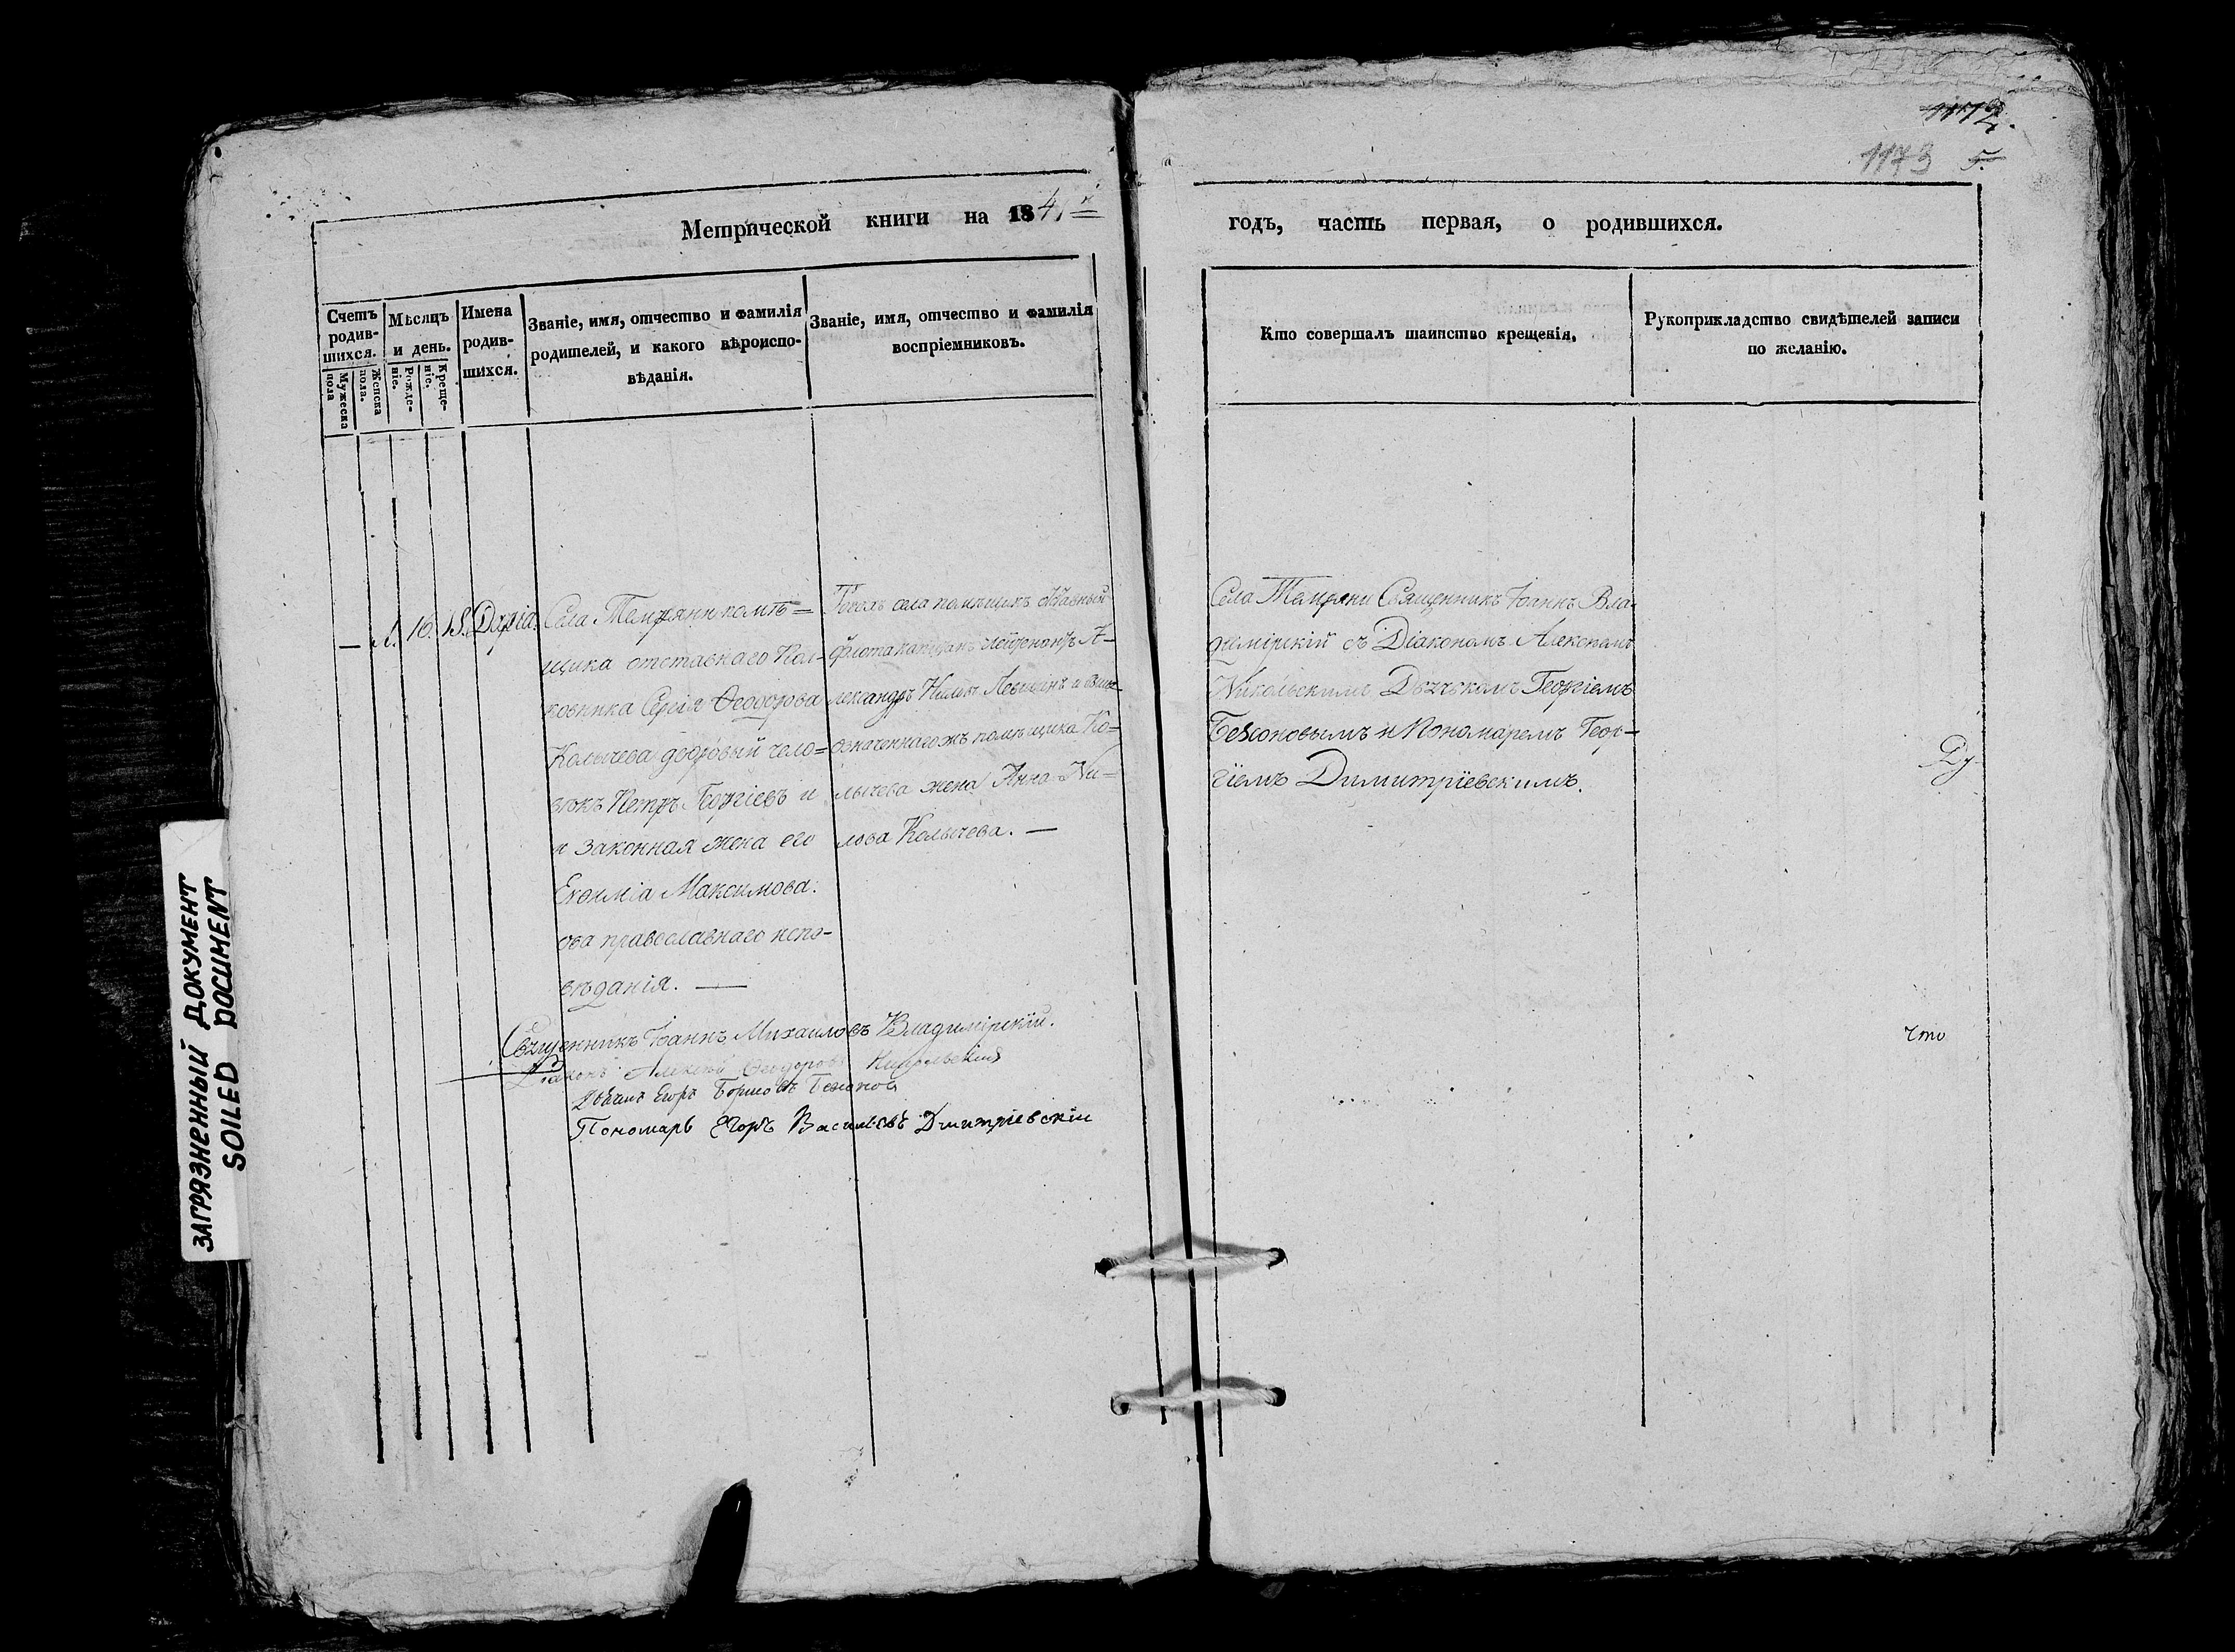 1172.
1173 5.
Метрической книги на 1841й
годъ, часть первая, о родившихся.
Счетъ родив-шихся.
Мужеска пола
Женска пола.
Мѣсяцъ и день.
Рожде-ніе.
Креще-ніе.
Имена родив-шихся.
Званіе, имя, отчество и фамилія
родителей, и какого вѣроиспо-
вѣданія.
Званіе, имя, отчество и фамилія
воспріемниковъ.
Кто совершалъ таинство крещенія.
Рукоприкладство свидѣтелей записи
по желанію.
— 1. 16. 18. Дарія.
Села Темряни помѣ=
щика отставнаго Пол-
ковника Сергія Ѳеодорова
Колычева дворовый чело=
вѣкъ Петръ Георгіевъ и
и законная жена его
Евѳимія Максимова:
оба православнаго испо-
вѣданія. —
Тогожъ села помѣщикъ
флота капитанъ лейтенантъ А-
лександръ Ниловъ Левшинъ и выше
означеннагожъ помѣщика Ко=
лычева жена Анна Ни=
лова Колычева. —
Села Темряни Священникъ Іоаннъ Вла-
димірскій съ Діакономъ Алексѣемъ
Никольскимъ Дьячкомъ Георгіемъ
Безсоновымъ и Пономаремъ Геор-
гіемъ Димитріевскимъ.
Ру
что
Священникъ Іоаннъ Михаиловъ Владимірскій.
Діаконъ Алексѣй Ѳеодоровъ Никольскій
Дьячекъ Егоръ Борисовъ
Пономарь Егоръ Васильевъ Дмитріевскіи
ЗАГРЯЗНЕННЫЙ ДОКУМЕНТ
SOILED DOCUMENT